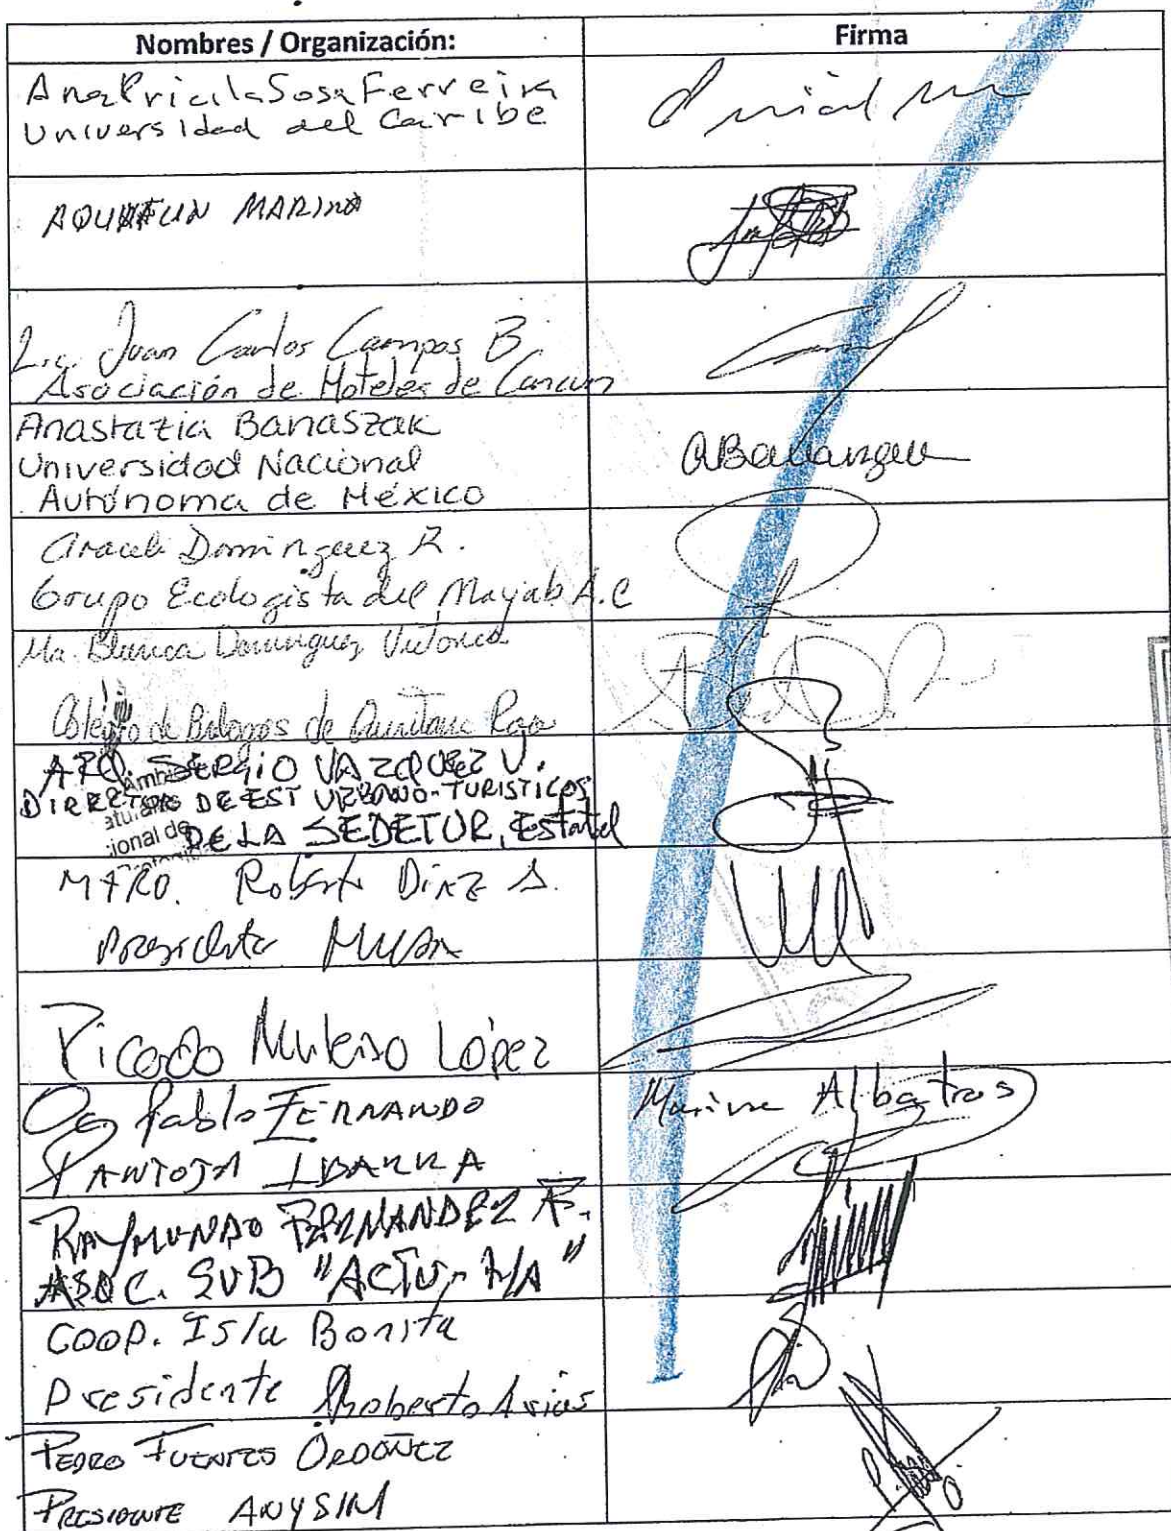 Nombres / Organización:
Firma
Ana Pricila Sosa Ferreira
Universidad del Caribe
MARINA
Lic. Juan Carlos Campos B
Asociación de Hoteles de Cancun
Anastazia Banaszak
Universidad Nacional
Autónoma de México
Araceli Dominguez R.
Grupo Ecologista del Mayab A.C
Ma. Blanca Dominguez
Colegio de Biologos de Quintana Roo
ARQ. SERGIO VAZQUEZ V.
DE EST URBANO-TURISTICOS
DE LA SEDETUR, Estatal
MTRO. Roberto Diaz
Presidente
López
Pablo FERNANDO
PANTOJA IBARRA
Marina Albatros
RAYMUNDO FERNANDEZ F.
ASOC. SUB
COOP. Isla Bonita
Presidente Roberto Arias
PEDRO FUENTES ORDOÑEZ
PRESIDENTE ANYSIM